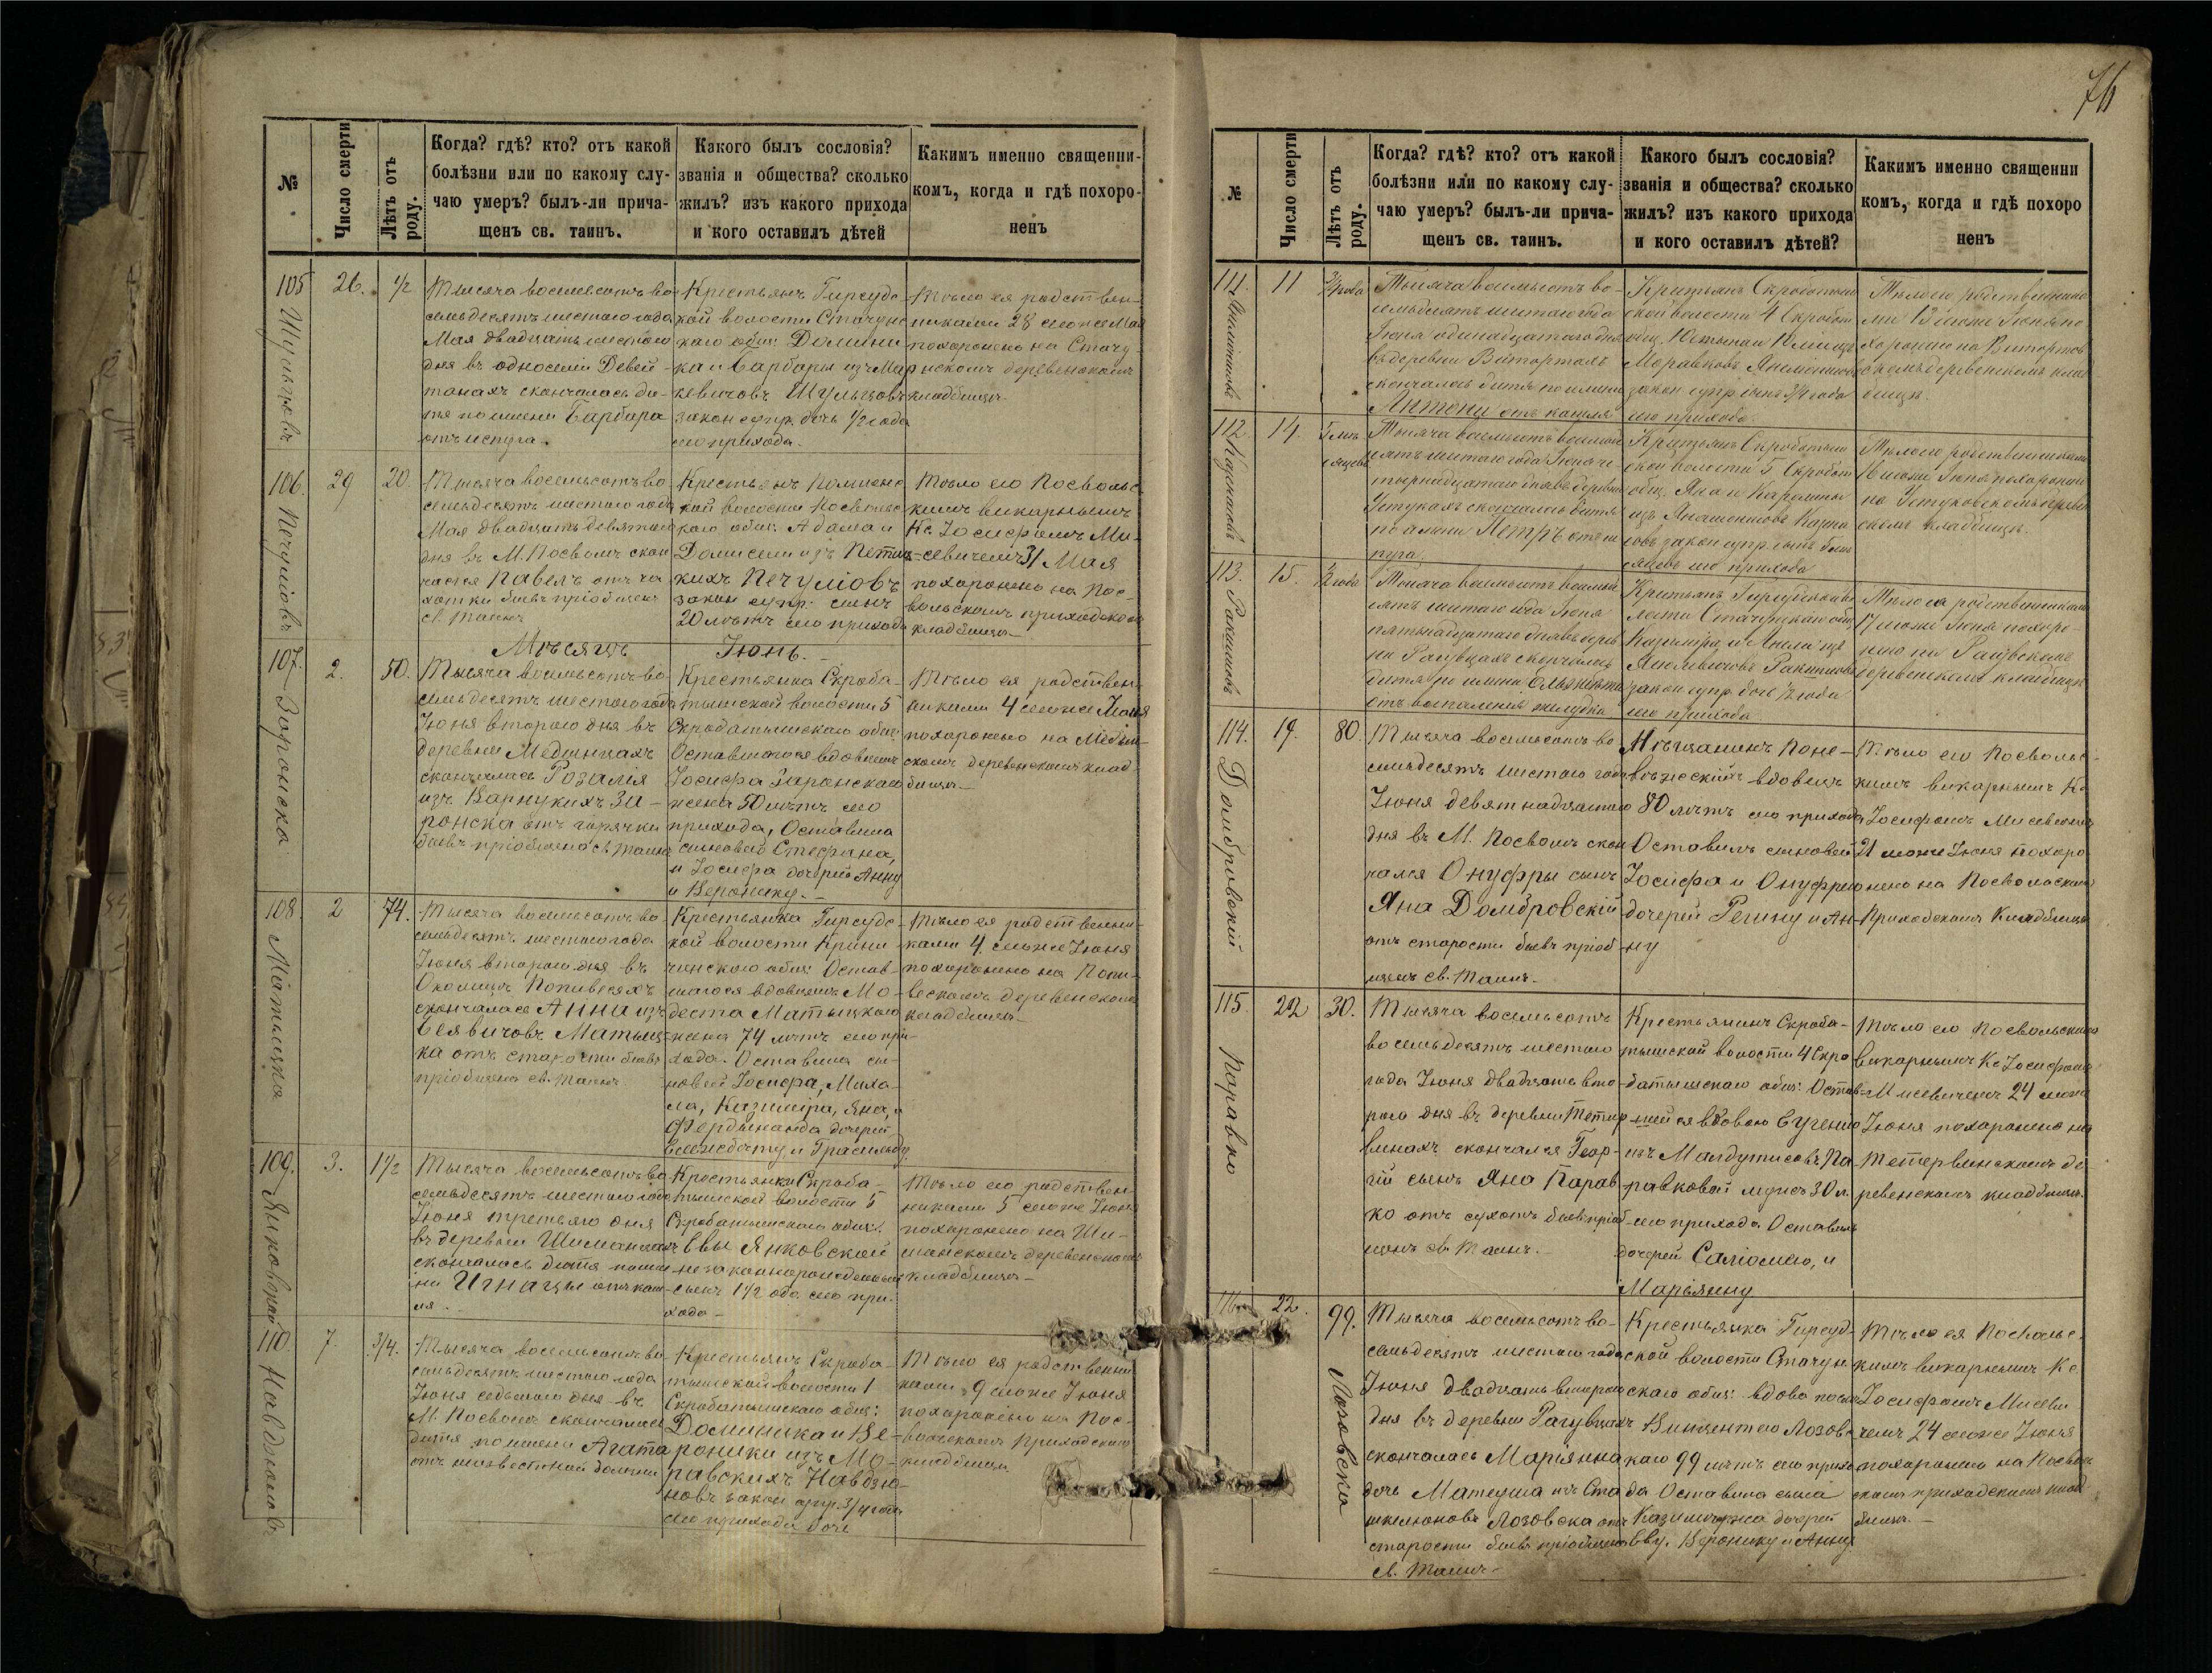 76
№
Число смерти
Лѣтъ отъ роду.
Когда? гдѣ? кто? отъ какой
болѣзни или по какому слу-
чаю умеръ? былъ-ли прича-
щенъ св. таинъ.
Какого былъ сословія?
званія и общества? сколько
жилъ? изъ какого прихода
и кого оставилъ дѣтей
Какимъ именно священни-
комъ, когда и гдѣ похоро-
ненъ
105
Шульцовъ
26.
1/2
Тысяча восемьсотъ во-
семьдесятъ шестого года
Мая двадцать шестого
дня въ односеліи Девей-
тонахъ скончалась ди-
тя по имени Барбара
отъ испуга.
Крестьянъ Гирсудс-
кой волости Стачунс-
каго общ: Домини-
ка и Барбары изъ Мар
кевичовъ Шульцовъ
закон супр. дочь 1/2 года
сего прихода.
Тѣло ея родствен-
никами 28 сегоже Мая
похоронено на Стачу-
нскомъ деревенскомъ
кладбищѣ.
106.
Печуліовъ
29
20.
Тысяча восемьсотъ во-
семьдесятъ шестого года
Мая двадцать девятого
дня въ М. Посволѣ скон
чался Павелъ отъ ча
хотки бывъ пріобщенъ
св. Таинъ
кой волости Посвольс
каго общ: Адама и
кихъ Печуліовъ
закон супр: сынъ
20 лѣтъ сего прихода
Тѣло его Посвольс
кимъ викарнымъ
Кс. Іосифомъ Ми-
севичемъ 31 Мая
похоронено на Пос-
вольскомъ приходском
кладбищѣ.
Мѣсяцъ Іюнь.
107.
Зоронска
2.
50.
Тысяча восемьсотъ во-
семьдесятъ шестого года
Іюня второго дня въ
деревни Медынцахъ
скончалась Розалія
изъ Варнукихъ За-
ронска отъ горячки
бывъ пріобщена св Таинъ
Крестьянка Скроба-
тышской волости 5
Скробатышскаго общ:
Оставшагося вдовцемъ
Іосифа Заронскаго
жена 50 лѣтъ сего
прихода, Оставила
сыновей Стефана,
и Іосифа дочерей Анну
и Веронику.
Тѣло ея родствен-
никами 4 сегоже Іюня
похоронено на Медын-
скомъ деревенскомъ клад-
бищѣ.
108
Матыцка
2
74.
Тысяча восемьсотъ во-
семьдесятъ шестого года
Іюня второго дня въ
Околицѣ Попивесяхъ
скончалась Анна изъ
Белявичовъ Матыц-
ка отъ старости бывъ
пріобщена св. Таинъ
Крестьянка Гирсудс-
кой волости Крини-
чинскаго общ: Остав-
шагося вдовцемъ Мо-
деста Матыцкаго
жена 74 лѣтъ сего при-
хода. Оставила сы-
новей Іосифа, Миха-
ла, Казиміра, Яна, и
Фердинанда дочерей
Елжбету, и Грасильду.
Тѣло ея родственни-
ками 4 сегоже Іюня
похоронено на Попи-
вескомъ деревенском
кладбищѣ.
109.
Янковской
3.
1 1/2
Тысяча восемьсотъ во
семьдесятъ шестого года
Іюня третьяго дня
въ деревни Шиманцахъ
скончалась дитя по име-
ни Игнацы отъ каш-
ля.
Крестьянки Скроба-
тышской волости 5
Скробатышскаго общ:
Евы Янковской
незаконнорожденный
сынъ 1 1/2 года сего при-
хода
Тѣло его родствен-
никами 5 сегоже Іюня
похоронено на Ши-
манскомъ деревенскомъ
кладбищѣ
110.
7.
3/4.
Тысяча восемьсотъ во-
семьдесятъ шестого года
Іюня седьмого дня въ
М. Посволѣ скончалась
дитя по имени Агата
отъ неизвестной болезни
Крестьянъ Скроба-
тышской волости 1
Скробатышскаго общ:
Доминика и Ве-
роники изъ Мо-
равскихъ Навдзю-
новъ закон супр. 3/4 года
сего прихода дочь
Тѣло ея родственни
ками 9 сегоже Іюня
похоронено на Пос-
вольскомъ Приходскомъ
кладбищѣ
№
Число смерти
Лѣтъ отъ роду.
Когда? гдѣ? кто? отъ какой
болѣзни или по какому слу-
чаю умеръ? былъ-ли прича-
щенъ св. таинъ.
Какого былъ сословія?
званія и общества? сколько
жилъ? изъ какого прихода
и кого оставилъ дѣтей?
Какимъ именно священни
комъ, когда и гдѣ похоро
ненъ
111.
11
3/4 года
Тысяча восемьсотъ во-
семьдесятъ шестаго года
Іюня одинадцатаго дня
въ деревни Витортахъ
скончалось дитя по имени
Антони отъ кашля
Крестьянъ Скробатыш
ской волости 4 Скробат
закон супр сынъ 3/4 года
сего прихода
Тѣло его родственника
ми 13 сегоже Іюня по
хоронено на Витортов
скомъ деревенскомъ клад
бищѣ.
112.
14.
Тысяча восемьсотъ восемьд
есятъ шестаго года Іюня че-
тырнадцатаго дня въ деревни
Устукахъ скончалось дитя
по имени Петръ отъ ис
пуга.
Крестьянъ Скробатыш
ской волости 5 Скробат
общ. Яна и Каролины
сего прихода
Тѣло его родственниками
16 сегоже Іюня похоронено
на Устуковскомъ деревен
скомъ кладбищѣ.
113.
15.
1/2 года
Тысяча восемьсотъ восемьд
есятъ шестаго года Іюня
пятнадцатаго дня въ дерев
ни Рагувцахъ скончалась
дитя по имени Ельжбета
отъ воспаленія желудка
Крестьянъ Гирсудской во
лости Стачунскаго общ
Казимира и Анели изъ
закон супр. дочь 1/2 года
сего прихода
Тѣло ея родственниками
17 сегоже Іюня похоро-
нено на Рагувскомъ
деревенскомъ кладбищѣ
114.
Домбровскій
19.
80.
Тысяча восемьсотъ во
семьдесятъ шестого года
Іюня девятнадцатого
дня въ М. Посволѣ скон
чался Онуфры сынъ
Яна Домбровскій
отъ старости бывъ пріоб-
щенъ св. Таинъ.
Мѣщанинъ Поне-
вѣжскій вдовецъ
80 лѣтъ сего прихода
Оставилъ сыновей
Іосифа и Онуфрію
дочерей Регину и Ан-
ну
Тѣло его Посвольс-
кимъ викарнымъ Кс
Іосифомъ Мисевичемъ
21 сегоже Іюня похоро
нено на Посвольскомъ
Приходскомъ Кладбищѣ
115.
Поравко
22
30.
Тысяча восемьсотъ
восемьдесятъ шестого
года Іюня двадцать вто-
рого дня въ деревни Тетир
винахъ скончался Геор-
гій сынъ Яна Парав
ко отъ сухотъ бывъ пріоб-
щенъ св. Таинъ.
Крестьянинъ Скроба-
тышской волости 4 Скро
батышскаго общ: Остав-
шейся вдовою Евгении
изъ Малдутисовъ Па-
равковой мужъ 30 л.
сего прихода. Оставилъ
дочерей Саліомею, и
Марьянну
Тѣло его Посвольскимъ
викарнымъ Кс Іосифомъ
Мисевичемъ 24 сегоже
Іюня похоронено на
Тетервинскомъ де
ревенскомъ кладбищѣ.
22.
99.
Лозовска
Тысяча восемьсотъ во-
семьдесятъ шестого года
Іюня двадцать второго
дня въ деревни Рагувцахъ
скончалась Марьянна
дочь Матеуша изъ Ста
шкелюновъ Лозовска отъ
старости бывъ пріобщена
св. Таинъ
Крестьянка Гирсуд-
ской волости Стачун
скаго общ: вдова после
Винцентего Лозовс
каго 99 лѣтъ сего прихо
да Оставила сына
Казимержа дочерей
Еву, Веронику и Анну.
Тѣло ея Посвольс-
кимъ викарнымъ Кс.
Іосифомъ Мисеви-
чемъ 24 сегоже Іюня
похоронено на Посволь
скомъ приходскомъ клад-
бищѣ.